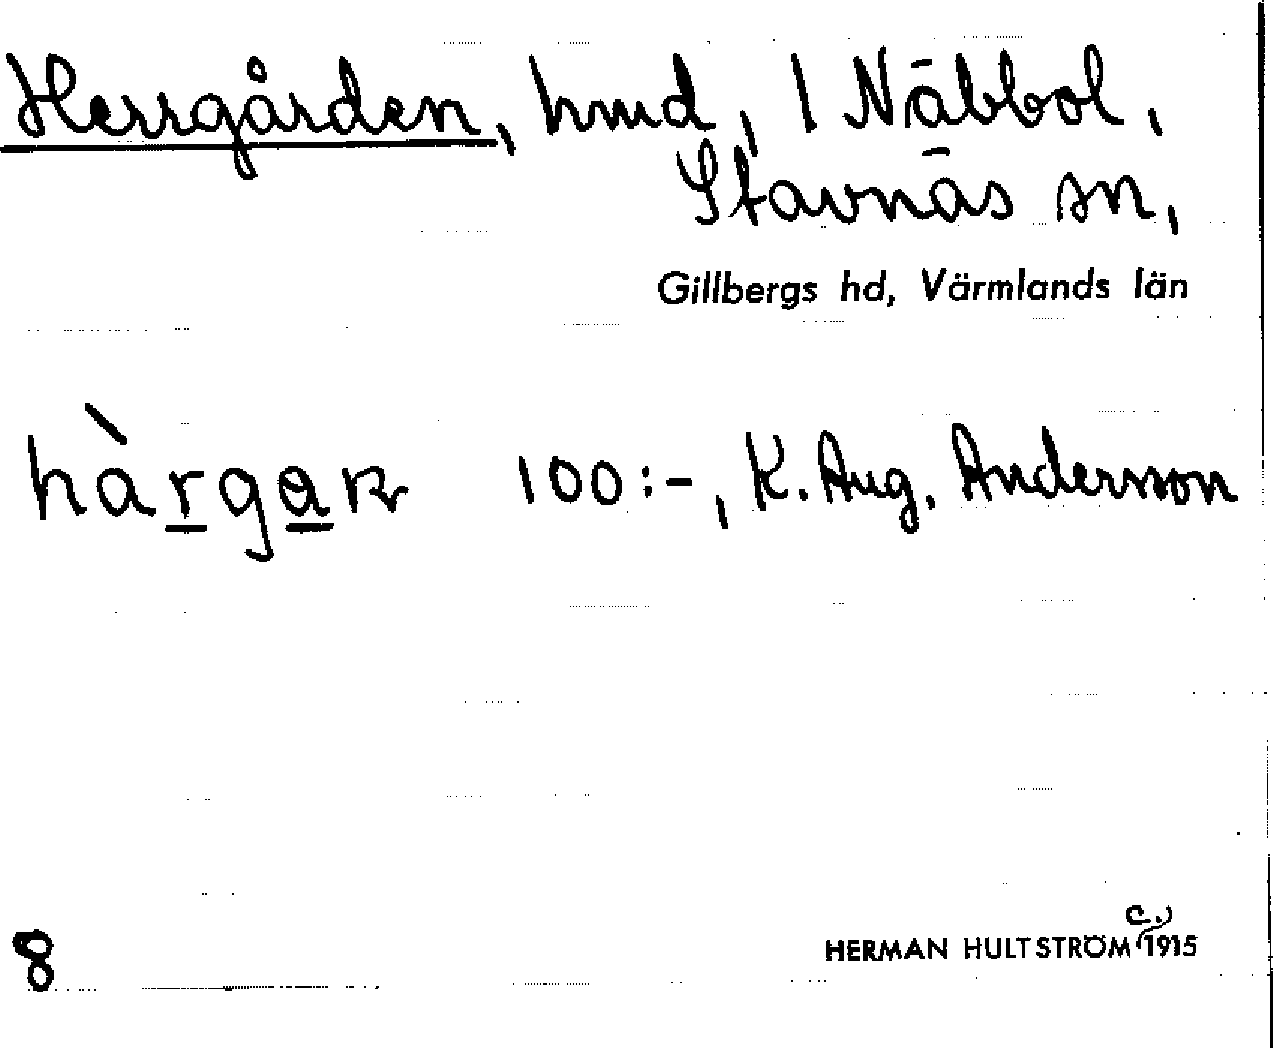 Herrgården, hmd, 1 Näbbol,
Stavnäs sn,
Gillbergs hd, Värmlands län
hàrgaṇ 100:-, K. Aug. Andersson
8
HERMAN HULTSTRÖM c. 1915